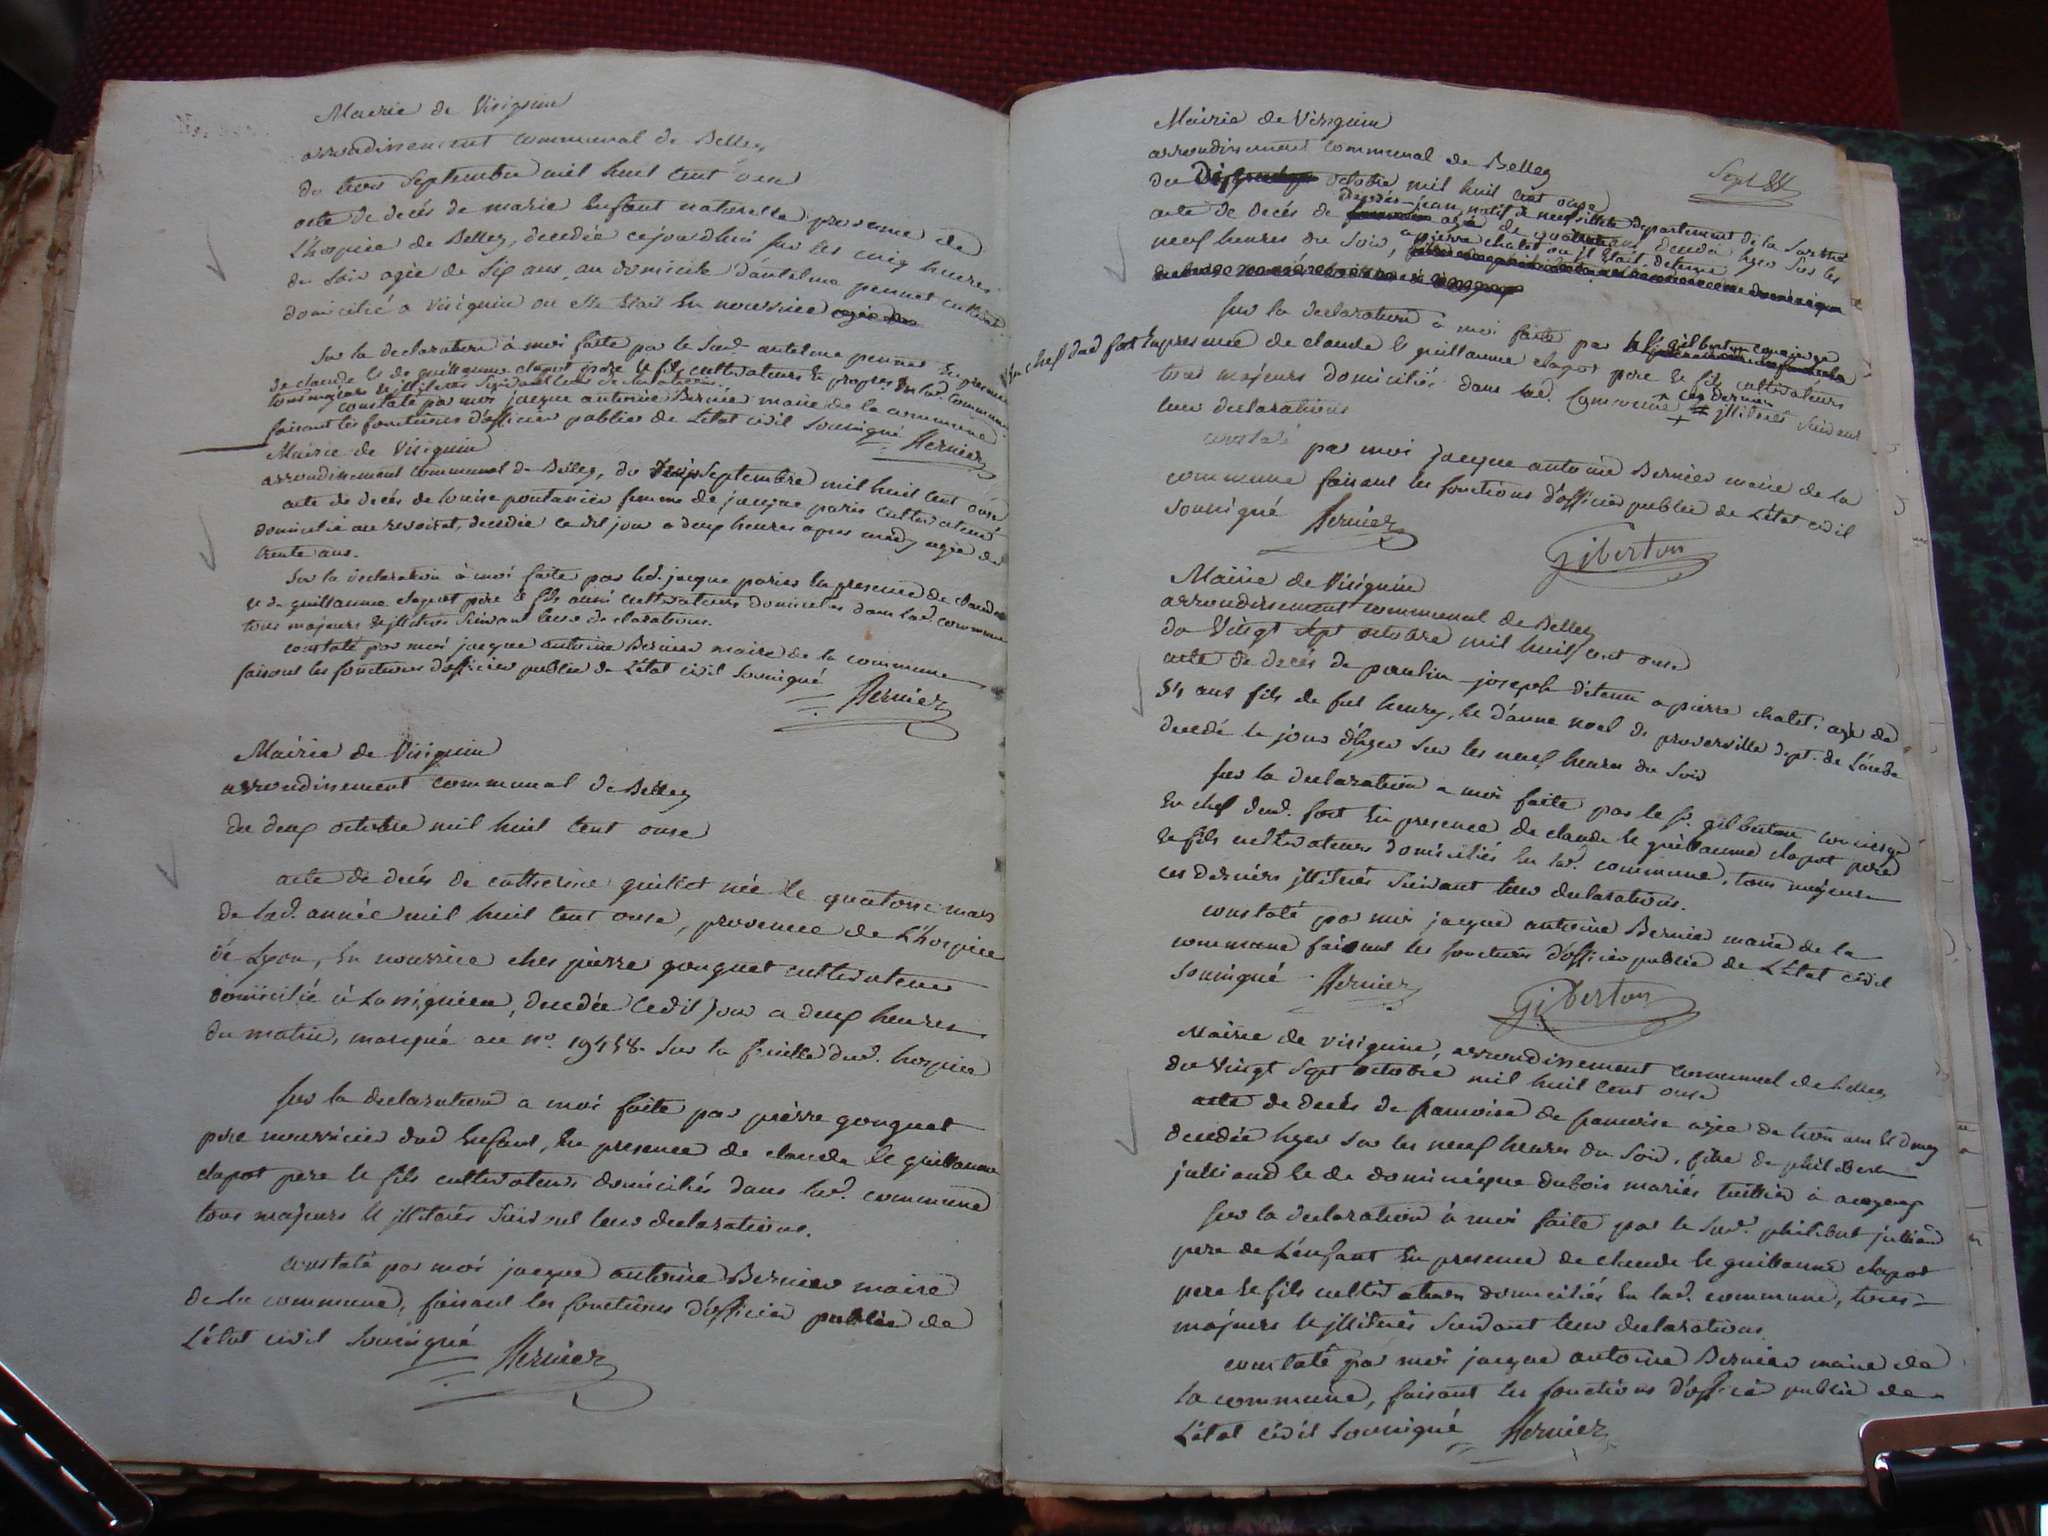 Mairie de Virignin
arrondissement communal de Belley
du trois septembre mil huit cent onze
acte de decés de marie enfant naturelle provenue de
L'hospice de Belley, decedée cejourdhui sur les cinq heures
du soir agée de six ans, au domicile d'antelme pennet cultivat.
domicilié a Virignin ou elle était en nourrice
Sur la declaration à moi faite par le Susd. antelme pennet en presence
de claude et de guillaume clapot pere et fils cultivateurs en lad. commune
tous majeurs et illiterés suivant leurs declarations.
constaté par moi jacque antoine Bernier maire de la commune
faisant les fonctions d'officier public de L'état civil soussigné Bernier
Mairie de Virignin
arrondissement communal de Belley, du septembre mil huit cent onze
acte de decés de louise pontanier femme de jacque paris cultivateur
domicilié au revoiret, decedée cedit jour a deux heures apres midy agée de
trente ans.
Sur la declaration à moi faite par led. jacque paris en presence de claude
et de guillaume clapot pere et fils aussi cultivateurs domiciliés dans lad. commune
tous majeurs et illiterés suivant leurs declarations.
constaté par moi jacque antoine Bernier maire de la commune
faisant les fonctions d'officier public de L'état civil soussigné
Bernier
Mairie de Virignin
arrondissement communal de Belley
du deux octobre mil huit cent onze
acte de decés de catherine guillot née le quatorze mars
de lad. année mil huit cent onze, provenue de L'hospice
de Lyon, en nourrice chez pierre gouguet cultivateur
domicilié à Lassignieu, decedée cedit jour a deux heures
du matin, marqué au n.º 19458. sur la feuille dud. hospice
Sur la declaration a moi faite par pierre gouguet
pere nourricier dud enfant, en presence de claude et guillaume
clapot pere et fils cultivateurs domiciliés dans lad. commune
tous majeurs et illiterés suivant leurs declarations.
constaté par moi jacque antoine Bernier maire
de la commune, faisant les fonctions d'officier public de
L'état civil soussigné Bernier
Mairie de Virignin
arrondissement communal de Belley
Sept
du octobre mil huit cent onze
acte de decés de jean, natif de departement de la Sarthe
agé de ans decedé hyer sur les
neuf heures du soir, a pierre chatel ou il était detenu
Sur la declaration à moi faite par le S.r gilberton concierge
en chef dud fort en presence de claude et guillaume clapot pere et fils cultivateurs
tous majeurs domiciliés dans lad. commune ces derniers illiterés suivant
leur declarations
constaté par moi jacque antoine Bernier maire de la
commune faisant les fonctions d'officier public de L'état civil
soussigné Bernier
Gilberton
Mairie de Virignin
arrondissement communal de Belley
du vingt sept octobre mil huit cent onze
acte de decés de paulin joseph detenu a pierre chatel. agé de
54 ans fils de feu henry, et d'anne noel de dept. de L'aude
decedé le jour d'hyer sur les neuf heures du soir
Sur la declaration a moi faite par le S.r gilberton concierge
en chef dud. fort en presence de claude et guillaume clapot pere
et fils cultivateurs domiciliés en lad. commune, tous majeurs
ces derniers illiterés suivant leurs declarations.
constaté par moi jacque antoine Bernier maire de la
commune faisant les fonctions d'officier public de L'état civil
soussigné Bernier Gilberton
Mairie de virignin, arrondissement communal de belley
du vingt sept octobre mil huit cent onze
acte de decés de francoise agée de trois ans et demy
decedée hyer sur les neuf heures du soir, fille de philibert
julliand et de dominique dubois mariés
Sur la declaration à moi faite par le Susd. philibert julliand
pere de L'enfant en presence de claude et guillaume clapot
pere et fils cultivateurs domiciliés en lad. commune, tous
majeurs et illiterés suivant leurs declarations
constaté par moi jacque antoine Bernier maire de
la commune, faisant les fonctions d'officier public de
L'état civil soussigné Bernier